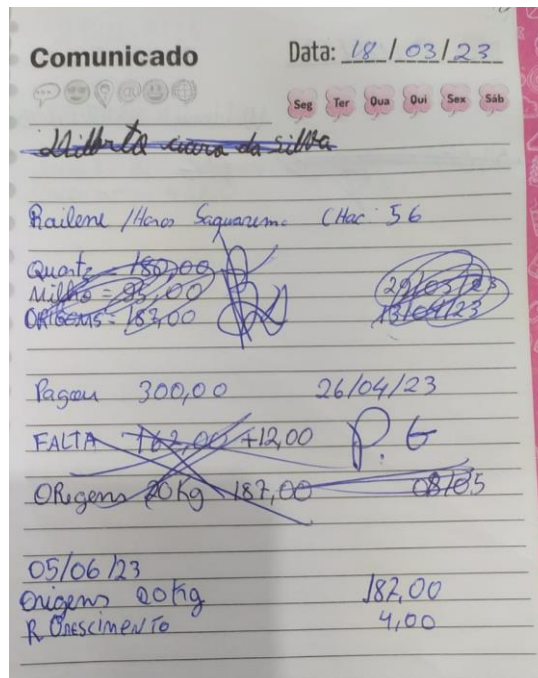 Comunicado
Data: 18/03/23
Seg Ter Qua Qui Sex Sáb
da Silva
Railene /Haras Saquarema (Hac: 56
Quartz = 180,00
Milho = 95,00 29/03/23
ORIGENS = 187,00 13/04/23
Pagou 300,00 26/04/23
FALTA 162,00 +12,00 P.G
ORigens 20Kg 187,00 08/05
05/06/23
Origens 20kg 182,00
R Onescimento 4,00